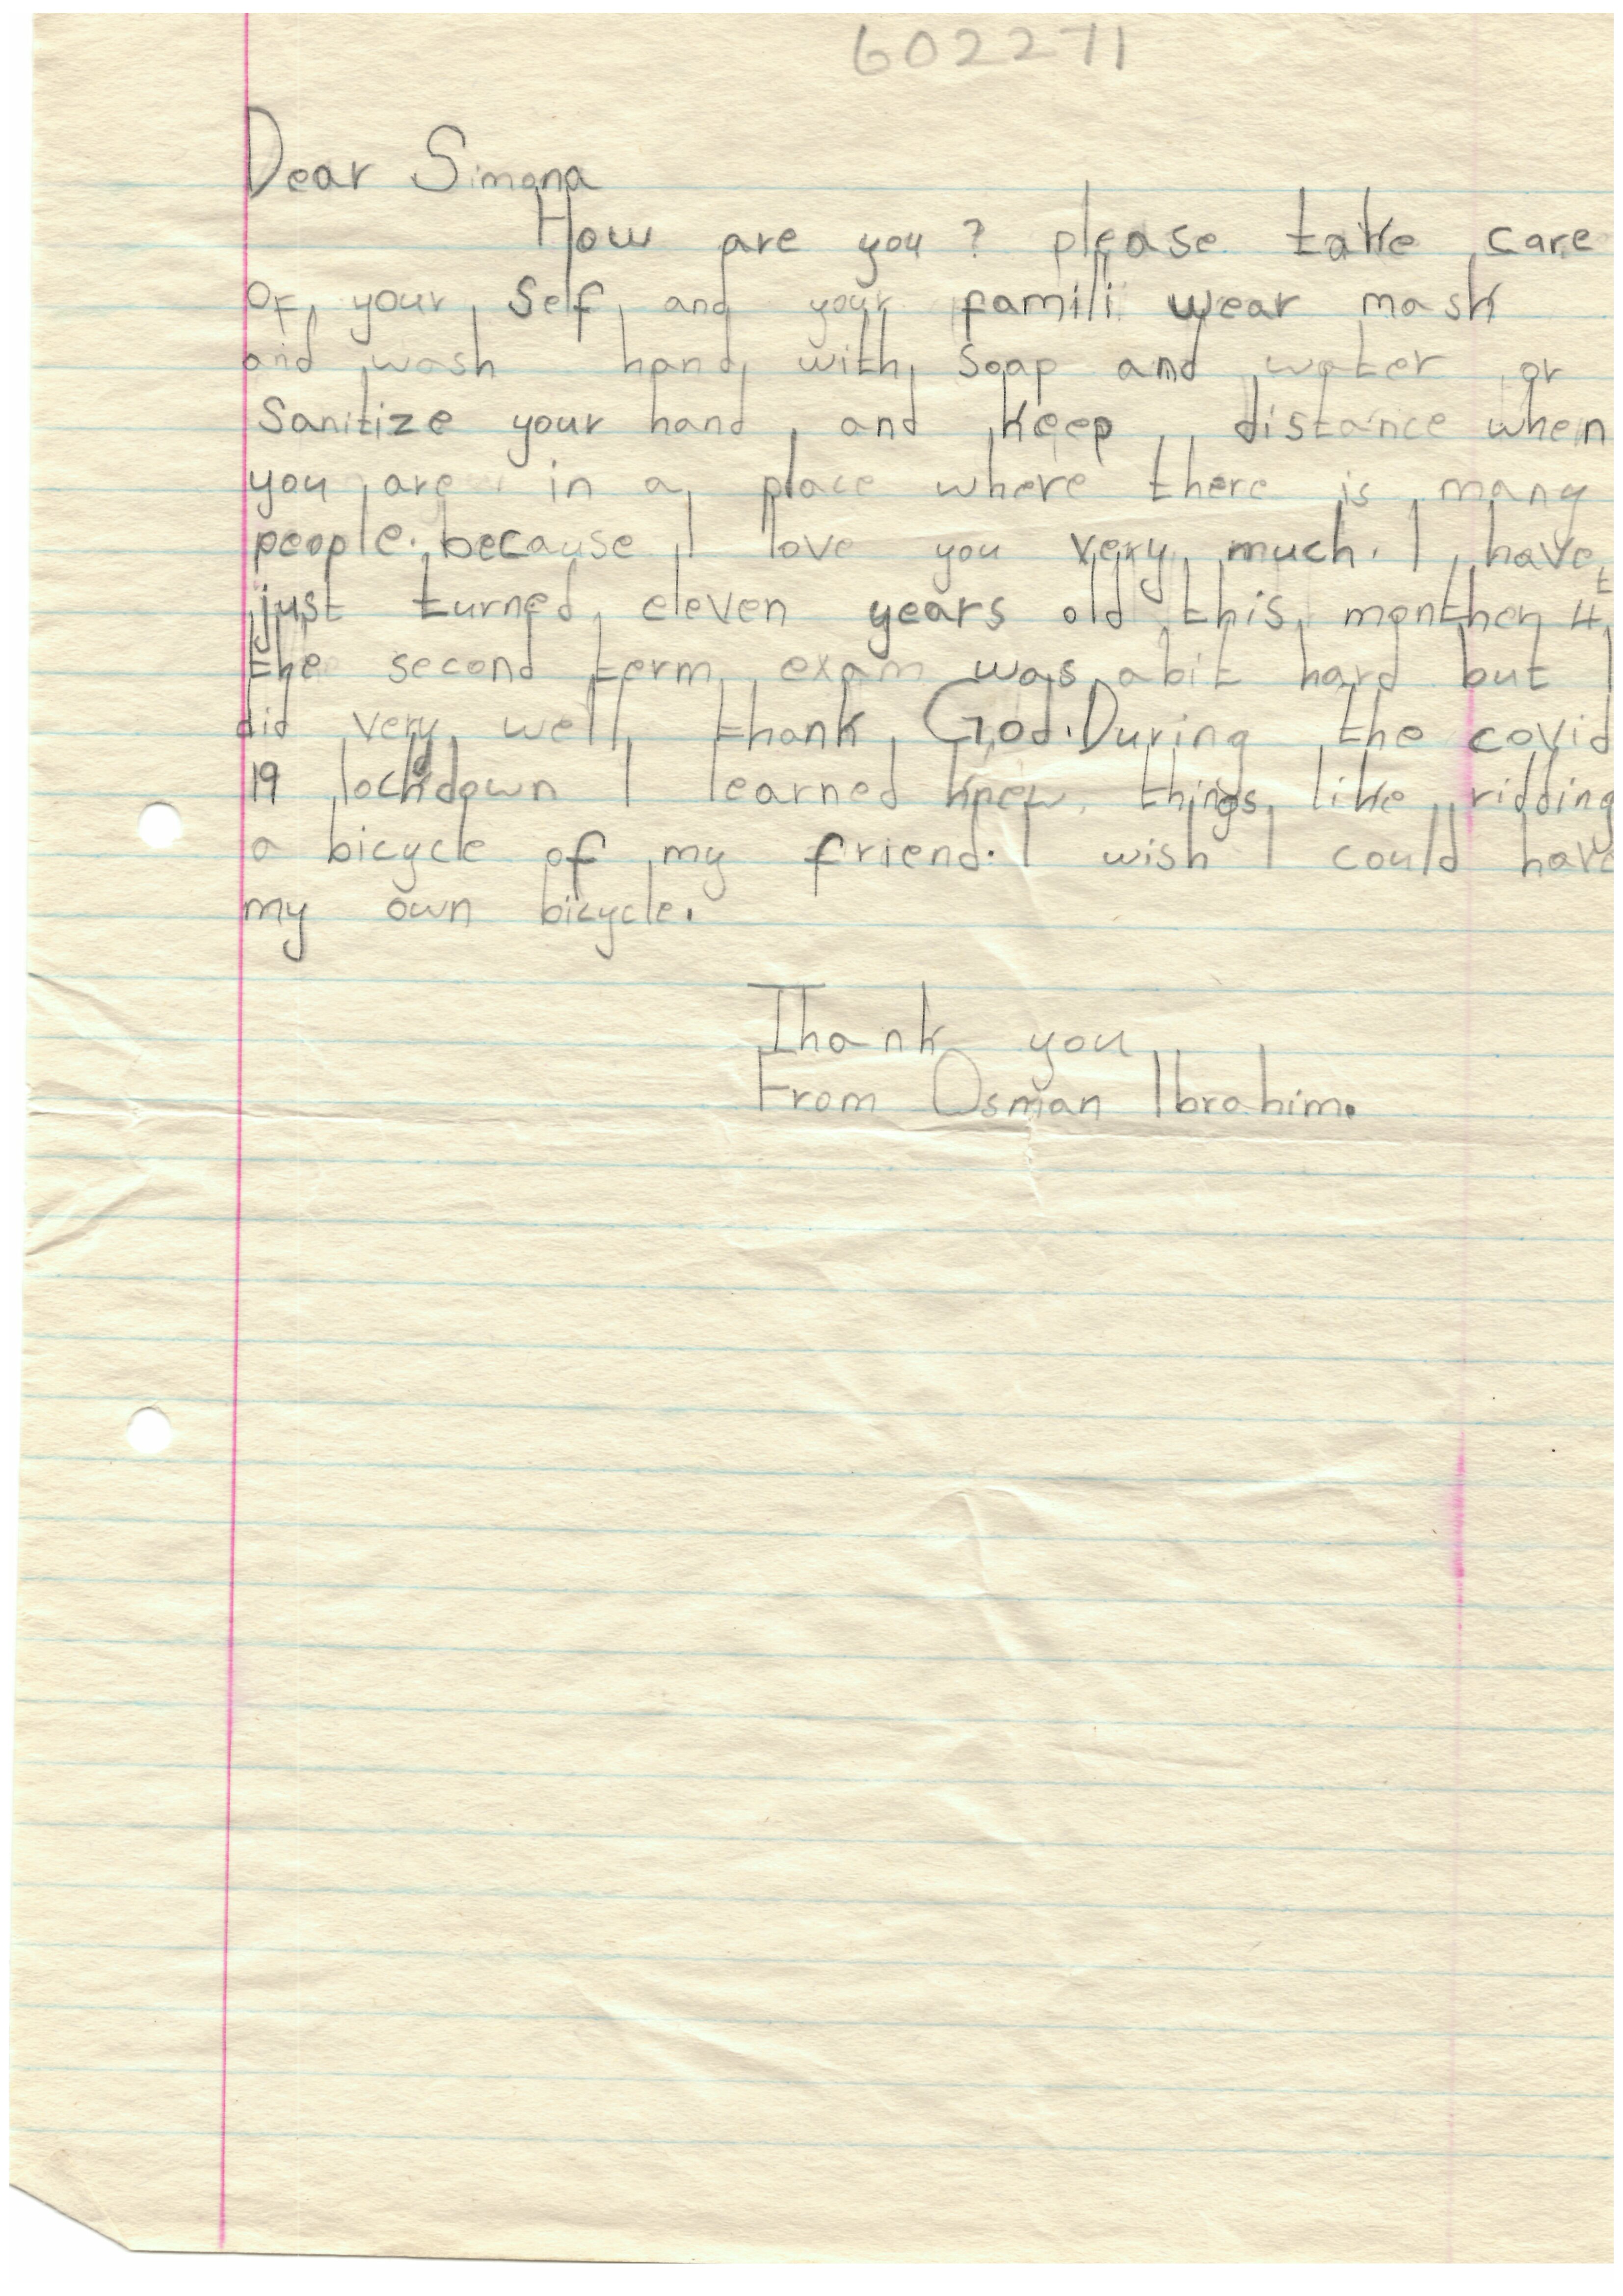 602271
Dear Simona
How are you? please take care
Of your Self and your famili wear mask
and wash hand with Soap and water or
Sanitize your hand and keep distance when
you are in a place where there is many
people. because I love you very much. I have
just turned eleven years old this month
the second term exam was abit hard but I
did very well thank God. During the covid
19 lockdown I learned knew things like ridding
a bicycle of my friend. I wish I could have
my own bicycle.
Thank you
From Osman Ibrahim.